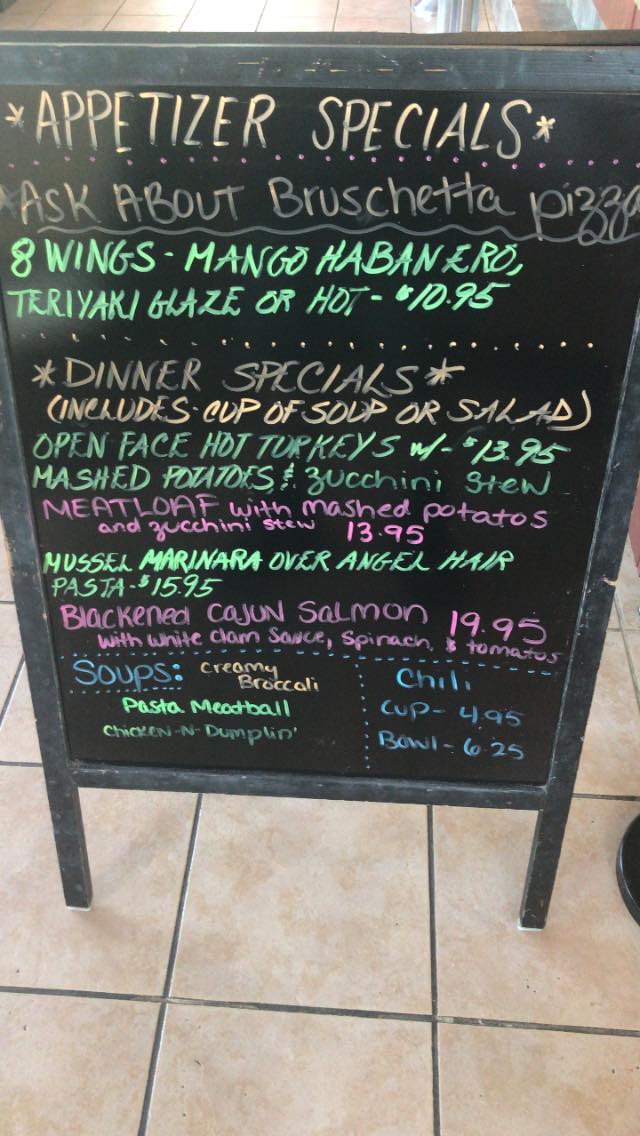 *APPETIZER SPECIALS*
*ASK ABOUT Bruschetta pizza
8 WINGS - MANGO HABANERO,
TERIYAKI GLAZE OR HOT - $10.95
*DINNER SPECIALS*
(INCLUDES - CUP OF SOUP OR SALAD)
OPEN FACE HOT TURKEYS w/- $13.95
MASHED POTATOES & zucchini stew
MEATLOAF with mashed potatos
and zucchini stew 13.95
MUSSEL MARINARA OVER ANGEL HAIR
PASTA - $15.95
Blackened CAJUN Salmon 19.95
with white clam sauce, spinach, & tomatos
Soups: creamy
Broccoli
Pasta Meatball
Chicken-N-Dumplin'
Chili
cup - 4.95
Bowl - 6.25